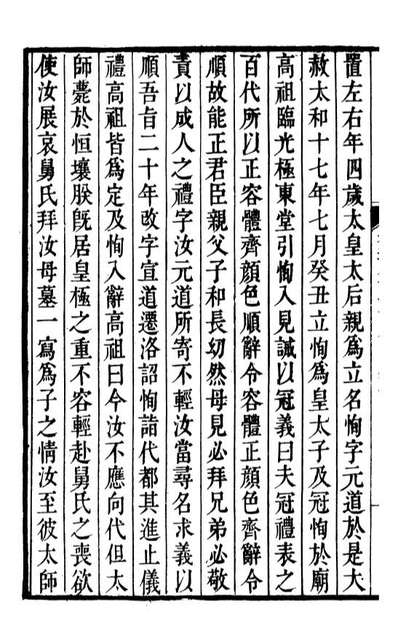 置左右年四歲太皇太后親爲立名恂字元道於是大
赦太和十七年七月癸丑立恂爲皇太子及冠恂於廟
高祖臨光極東堂引恂入見誡以冠義曰夫冠禮表之
百代所以正容體齊顏色順辭令容體正顏色齊辭令
順故能正君臣親父子和長幼然母見必拜兄弟必敬
責以成人之禮字汝元道所寄不輕汝當尋名求義以
順吾旨二十年改字宣道遷洛詔恂詣代都其進止儀
禮高祖皆爲定及恂入辭高祖曰今汝不應向代但太
師薨於恒壤朕旣居皇極之重不容輕赴舅氏之喪欲
使汝展哀舅氏拜汝母墓一寫爲子之情汝至彼太師